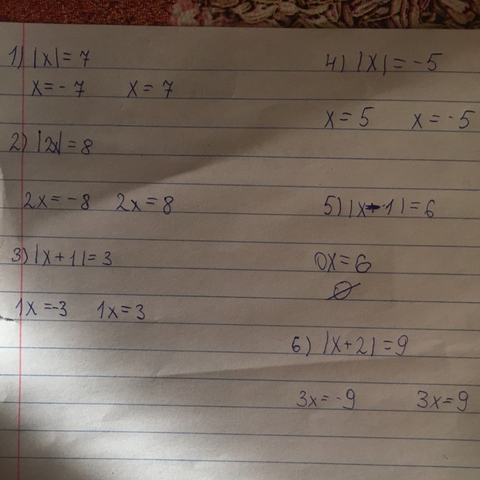 1) |x| = 7
x = -7 x = 7
2) |2x| = 8
2x = -8 2x = 8
3) |x + 1| = 3
1x = -3 1x = 3
4) |x| = -5
x = 5 x = -5
5) |x - 1| = 6
0x = 6
∅
6) |x + 2| = 9
3x = -9 3x = 9